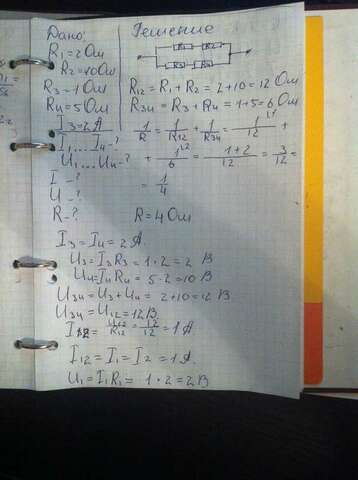 Дано:
R₁=2Ом
R₂=10Ом
R₃=1Ом
R₄=5Ом
I₃=2А
I₁...I₄-?
U₁...U₄-?
I-?
U-?
R-?
Решение
R₁ R₂
R₃ R₄
R₁₂ = R₁ + R₂ = 2+10=12 Ом
R₃₄ = R₃ + R₄ = 1+5=6 Ом
1/R = 1/R₁₂ + 1/R₃₄ = 1/12 +
+ 1/6 = (1+2)/12 = 3/12 =
= 1/4
R=4 Ом
I₃ = I₄ = 2 А.
U₃=I₃R₃ = 1·2 = 2 В
U₄=I₄R₄ = 5·2=10В
U₃₄ = U₃+U₄ = 2+10=12 В.
U₃₄ = U₁₂=12В.
I₁₂ = U₁₂/R₁₂ = 12/12 = 1 А
I₁₂ = I₁ = I₂ = 1 А.
U₁=I₁R₁ = 1·2=2В